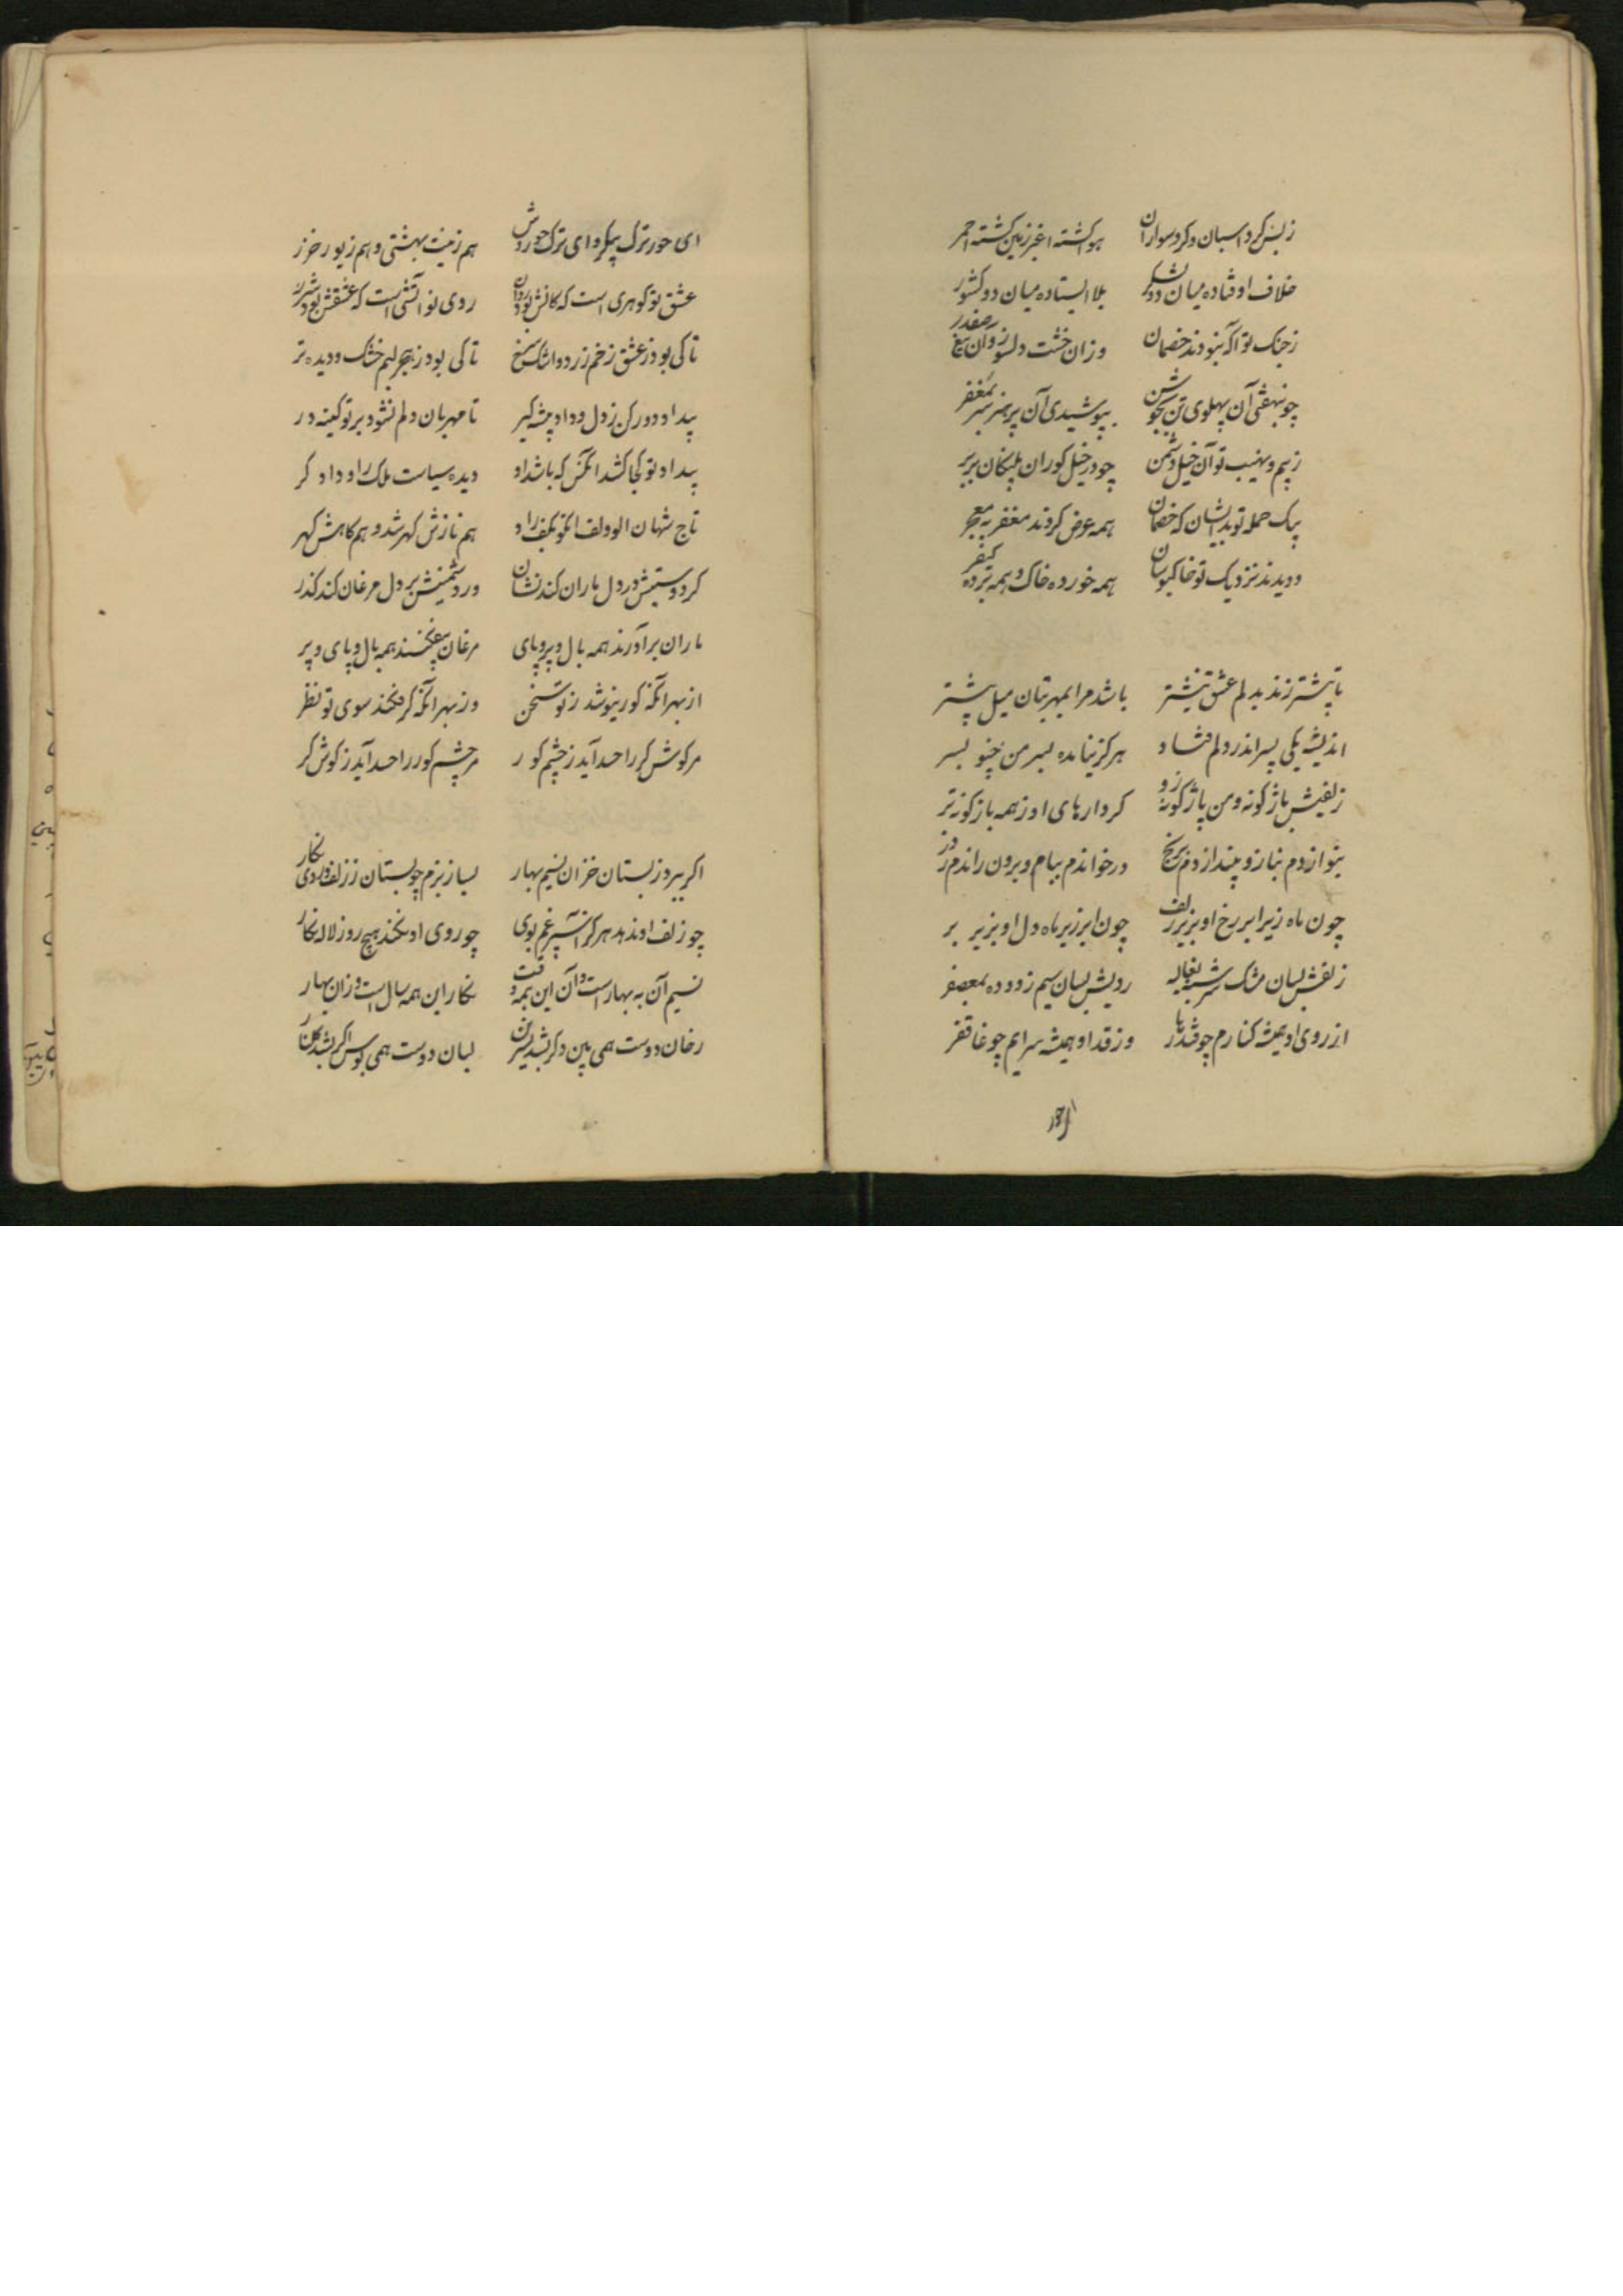 ز بس گرد اسبان و گرد سواران هوا گشته اغبر زمین گشته احمر
خلاف اوفتاده میان دو لشکر بلا ایستاده میان دو کشور
ز جنک تو آکه نبودند خصمان وزان خشت دلسوز وان تیغ صفدر
چو بنهفتی آن پهلوی تن بجوشن بپوشیدی آن پر هنر سر بمغفر
ز بیم و نهیب تو آن خیل دشمن چو در خیل کوران پلنکان بربر
بیک حمله تو بدانسان که خصمان همه عوض کردند مغفر به معجر
دویدند نزدیک تو خاکبوسان همه خورده خاک و همه برده کیفر
تا پیشتر زند بدلم عشق نیشتر باشد مرا بمهر بتان میل پیشتر
اندیشه یکی پسر اندر دلم فتاد هرکز نیامده بسر من چنو بسر
زلفینش باژکونه و من باژکونه زو کردارهای او ز همه باژکونه تر
بنوازدم بناز و بیندازدم برنج درخواندم ببام و برون راندم ز در
چون ماه زیر ابر رخ او بزیر زلف چون ابر زیر ماه دل او بزیر بر
زلفش بسان مشک سرشته بغالیه رویش بسان سیم زدوده بمعصفر
از روی او همیشه کنارم چو قندهار وز قد او همیشه سرایم چو غاتفر
ای حور
ای حور ترک پیکر و ای ترک حوروش هم زینت بهشتی و هم زیور خزر
عشق تو کوهری است که کانش بود روان روی تو آتشی است که عشقش بود شرر
تا کی بود ز عشق رخم زرد و اشک سرخ تا کی بود ز هجر لبم خشک و دیده تر
بیداد دور کن ز دل و داد پیشه کیر تا مهربان دلم نشود بر تو کینه ور
بیداد تو کجا کشد آنکس که باشد او دیده سیاست ملک راد دادکر
تاج شهان ابودلف آنکو بکف راد هم نازش کهر شد و هم کاهش کهر
کر دوستیش در دل ماران کند نشان ور دشمنیش بر دل مرغان کند کذر
ماران برآورند همه بال و پر و پای مرغان بیفکنند همه بال و پای و پر
از بهر آنکه کور نیوشد ز تو سخن وز بهر آنکه کر فکند سوی تو نظر
مر کوش کر را حسد آید ز چشم کور مر چشم کور را حسد آید ز کوش کر
اکر ببرد ز بستان خزان نسیم بهار بساز بزم چو بستان ز زلف و روی نکار
چو زلف او ندهد هرکز اسپرغم بوی چو روی او نکند هیچ روز لاله نکار
نسیم آن به بهار است و آن این همه وقت نکار این همه سال است و زان بهار
رخان دوست همی بین دکر بشد نسرین لبان دوست همی بوس اکر بشد کلنار